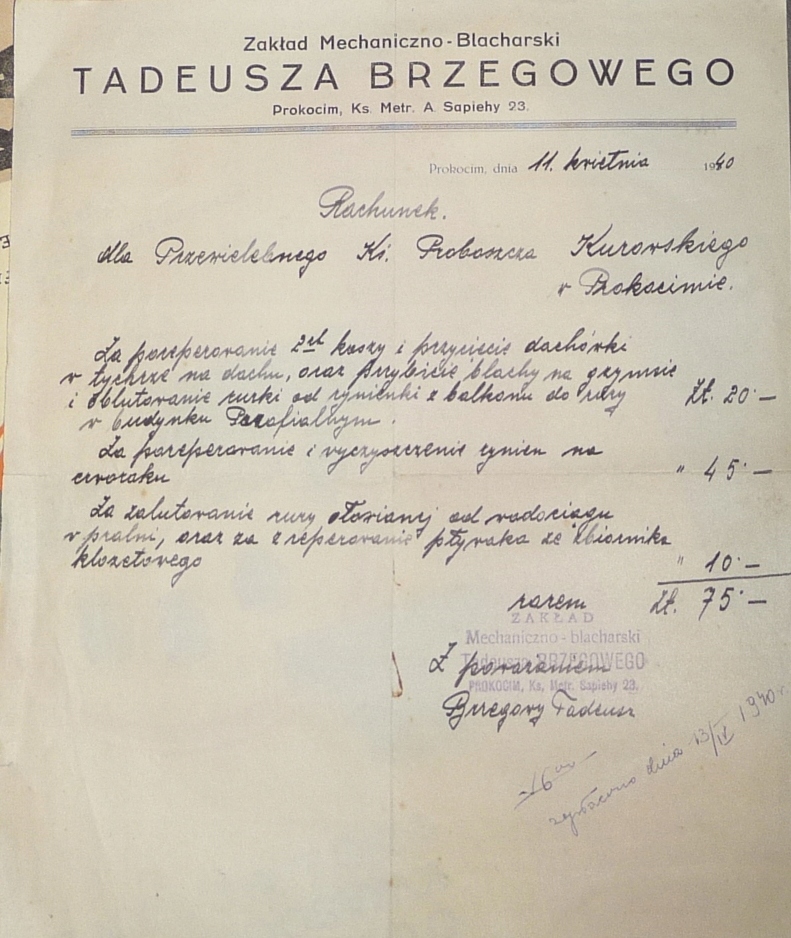 Zakład Mechaniczno-Blacharski
TADEUSZA BRZEGOWEGO
Prokocim, Ks. Metr. A. Sapiehy 23.
Prokocim, dnia 11. kwietnia 1940
Rachunek.
dla Przewielebnego Ks. Proboszcza Kurowskiego
w Prokocimie.
Za poreperowanie koszy i przycięcie dachówki
w tychrze na dachu, oraz przybicie blachy na gzymsie
i oblutowanie rurki od rynienki z balkonu do rury Zł. 20·—
w budynku Parafialnym.
Za poreperowanie i wyczyszczenie rynien na
czworaku " 45·—
Za zalutowanie rury ołowianej od wodociągu
w pralni, oraz za zreperowanie pływaka ze zbiornika
klozetowego " 10·—
razem Zł. 75·—
ZAKŁAD
Mechaniczno-blacharski
Tadeusza BRZEGOWEGO
PROKOCIM, Ks. Metr. Sapiehy 23.
Z poważaniem
Brzegowy Tadeusz
zapłacono dnia 13/IV 1940 r.